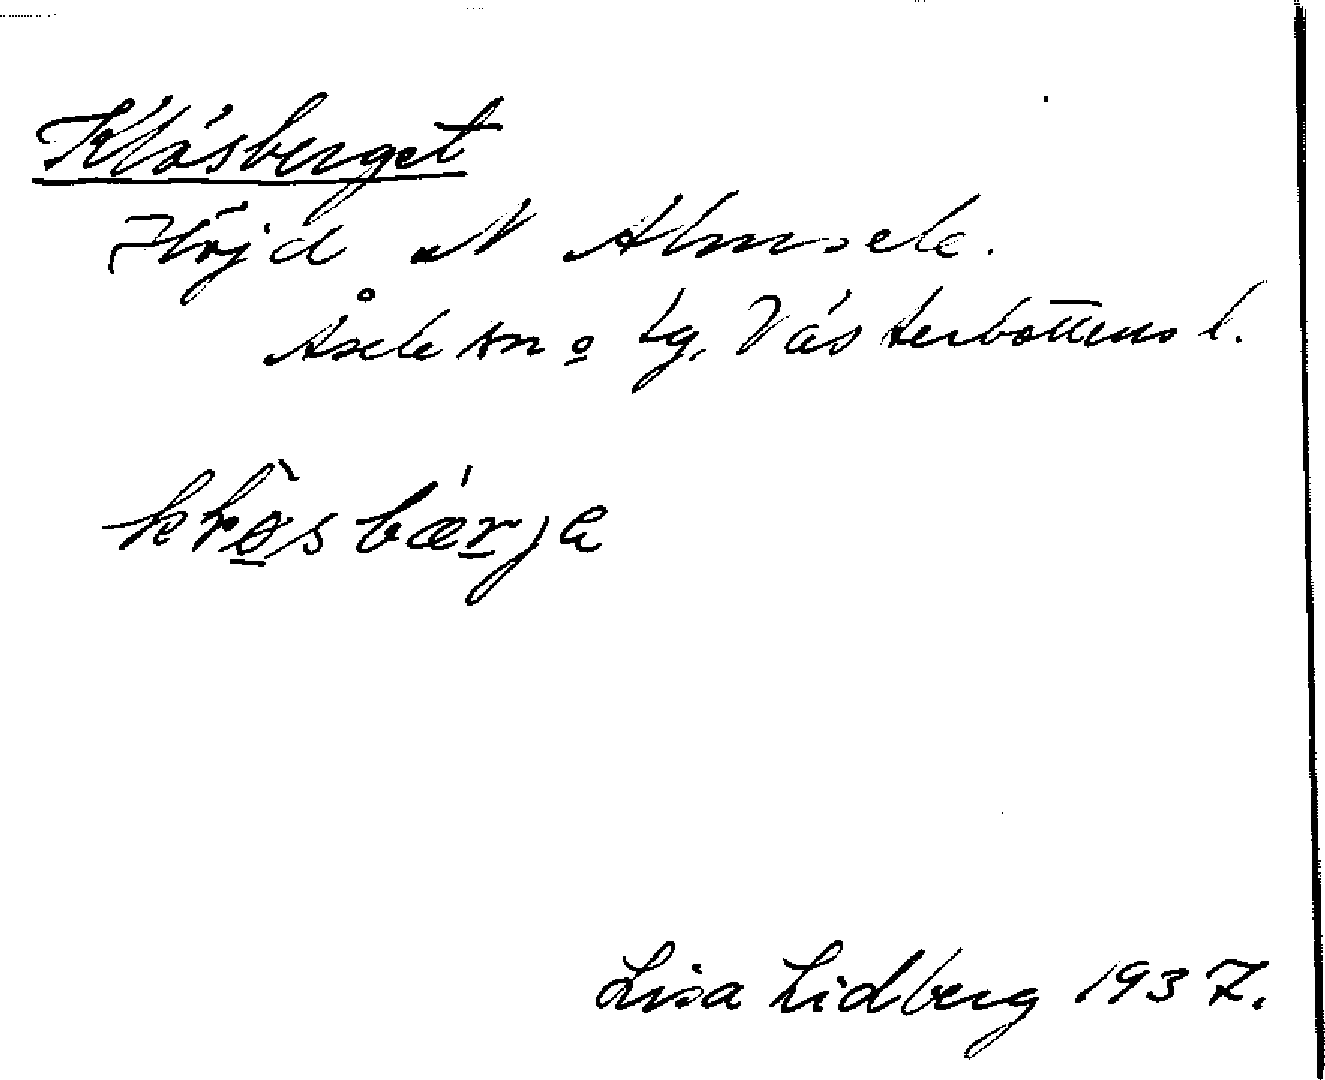 Klösberget
Höjd N Almsele.
Åsele sn o lg. Västerbottens l.
Lisa Lidberg 1937.